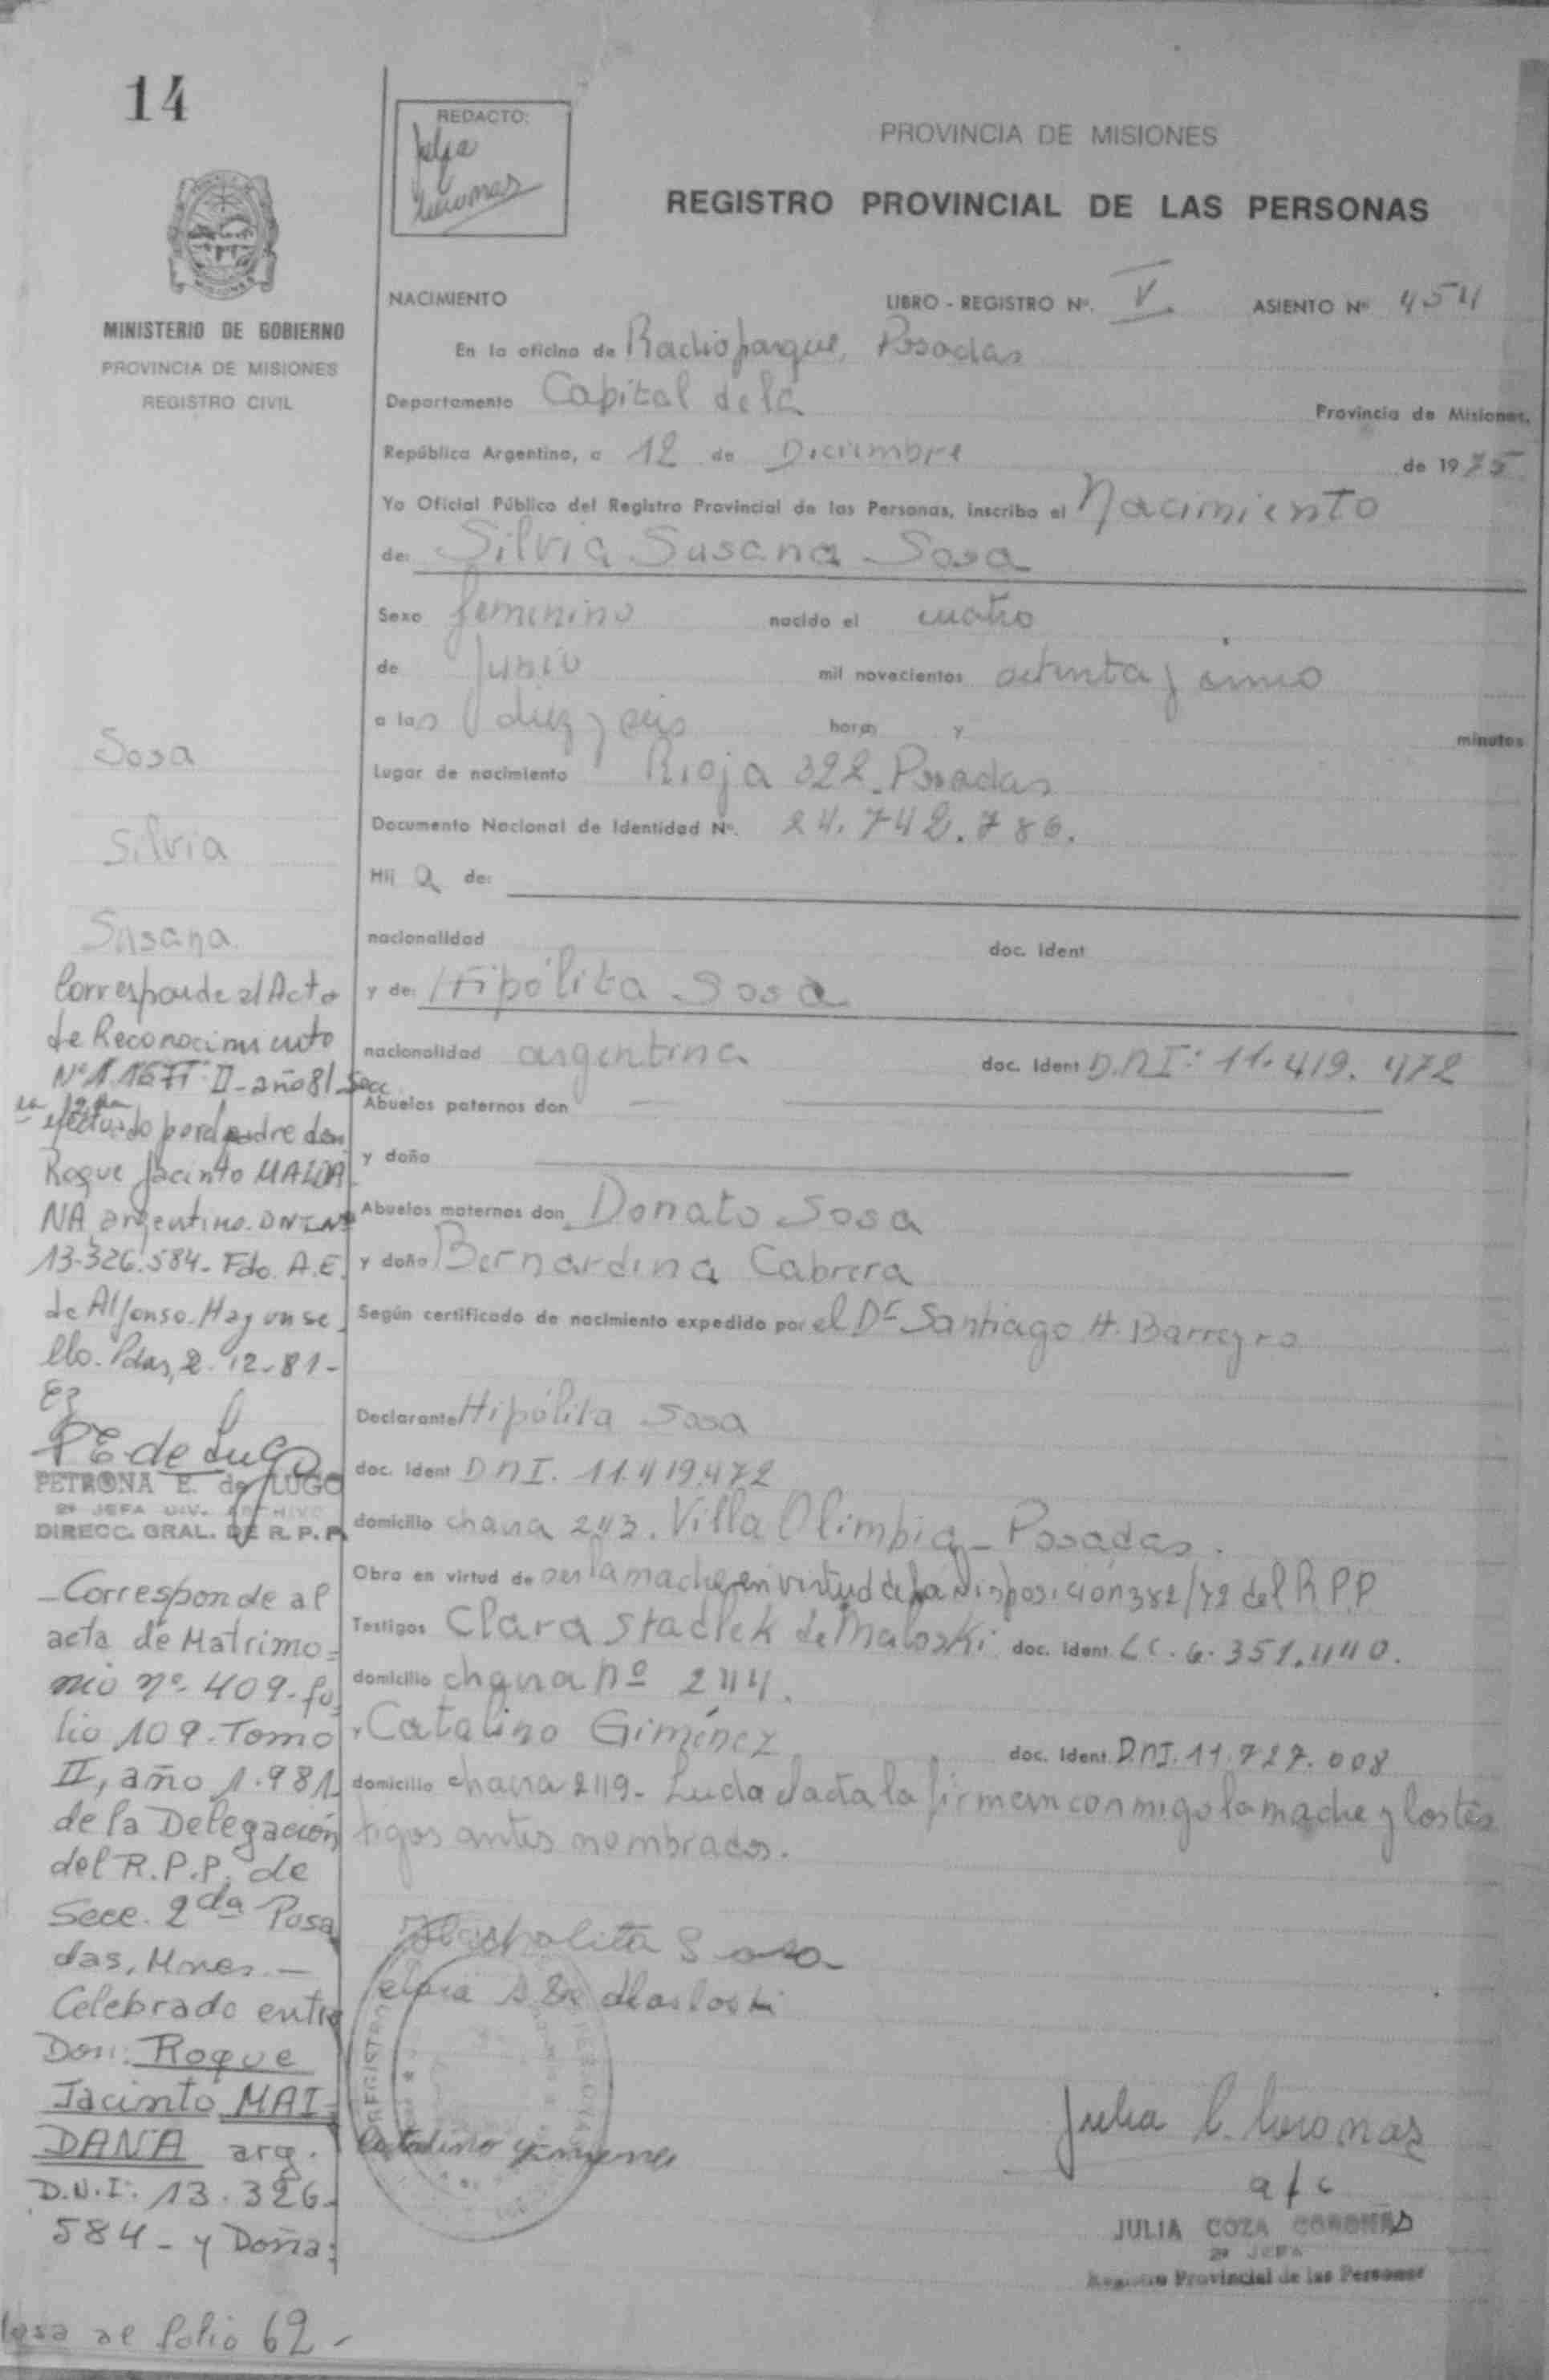 14
REDACTO:
PROVINCIA DE MISIONES
REGISTRO PROVINCIAL DE LAS PERSONAS
MINISTERIO DE GOBIERNO
PROVINCIA DE MISIONES
REGISTRO CIVIL
NACIMIENTO LIBRO - REGISTRO Nº. V ASIENTO Nº 454
En la oficina de Radioparque, Posadas
Departamento Capital de la Provincia de Misiones,
República Argentina, a 12 de Diciembre de 1975
Yo Oficial Público del Registro Provincial de las Personas, inscribo el Nacimiento
de: Silvia Susana Sosa
Sexo femenino nacido el cuatro
de Junio mil novecientos setenta y cinco
a las diez y seis horas y minutos
Lugar de nacimiento Rioja 322. Posadas
Documento Nacional de Identidad Nº. 24.742.786.
Hij a de:
nacionalidad doc. Ident
y de: Hipólita Sosa
nacionalidad argentina doc. Ident D.N.I: 11.419.472
Abuelos paternos don
y doña
Abuelos maternos don Donato Sosa
y doña Bernardina Cabrera
Según certificado de nacimiento expedido por el Dr Santiago H. Barreyro
Declarante Hipólita Sosa
doc. Ident D N I. 11.419.472
domicilio chacra 243. Villa Olimpia - Posadas.
Obra en virtud de ser la madre en virtud de la Disposición 382/72 del R P P
Testigos Clara Stadlek de Maloski doc. Ident L C. 6.351.440.
domicilio chacra nº 244.
y Catalino Giménez doc. Ident. D.N.I. 11.727.008
domicilio chacra 249. Leída el acta la firman conmigo la madre y los tes
tigos antes nombrados.
Sosa
Catalino
Julia C. Coronas
a/c
JULIA COZA CORONAS
2ª JEFA
Registro Provincial de las Personas
Sosa
Silvia
Susana
Corresponde al Acta
de Reconocimiento
Nº 1.167 T. II - año 81 Secc
efectuado por el padre don
Roque Jacinto MAIDA
NA argentino. DNI Nº
13.326.584. Fdo. A.E.
de Alfonso. Hay un se
llo. Pdas, 2.12.81-
P E de Lugo
PETRONA E. de LUGO
2ª JEFA DIV. ARCHIVO
DIRECC. GRAL. DE R. P. P.
- Corresponde al
acta de Matrimo=
nio nº 409 - fo
lio 109. Tomo
II, año 1.981
de la Delegación
del R.P.P. de
Secc. 2da Posa
das, Mnes. -
Celebrado entre
Don: Roque
Jacinto MAI=
DANA arg.
D.N.I: 13.326.
584 - y Doña:
al folio 62 -